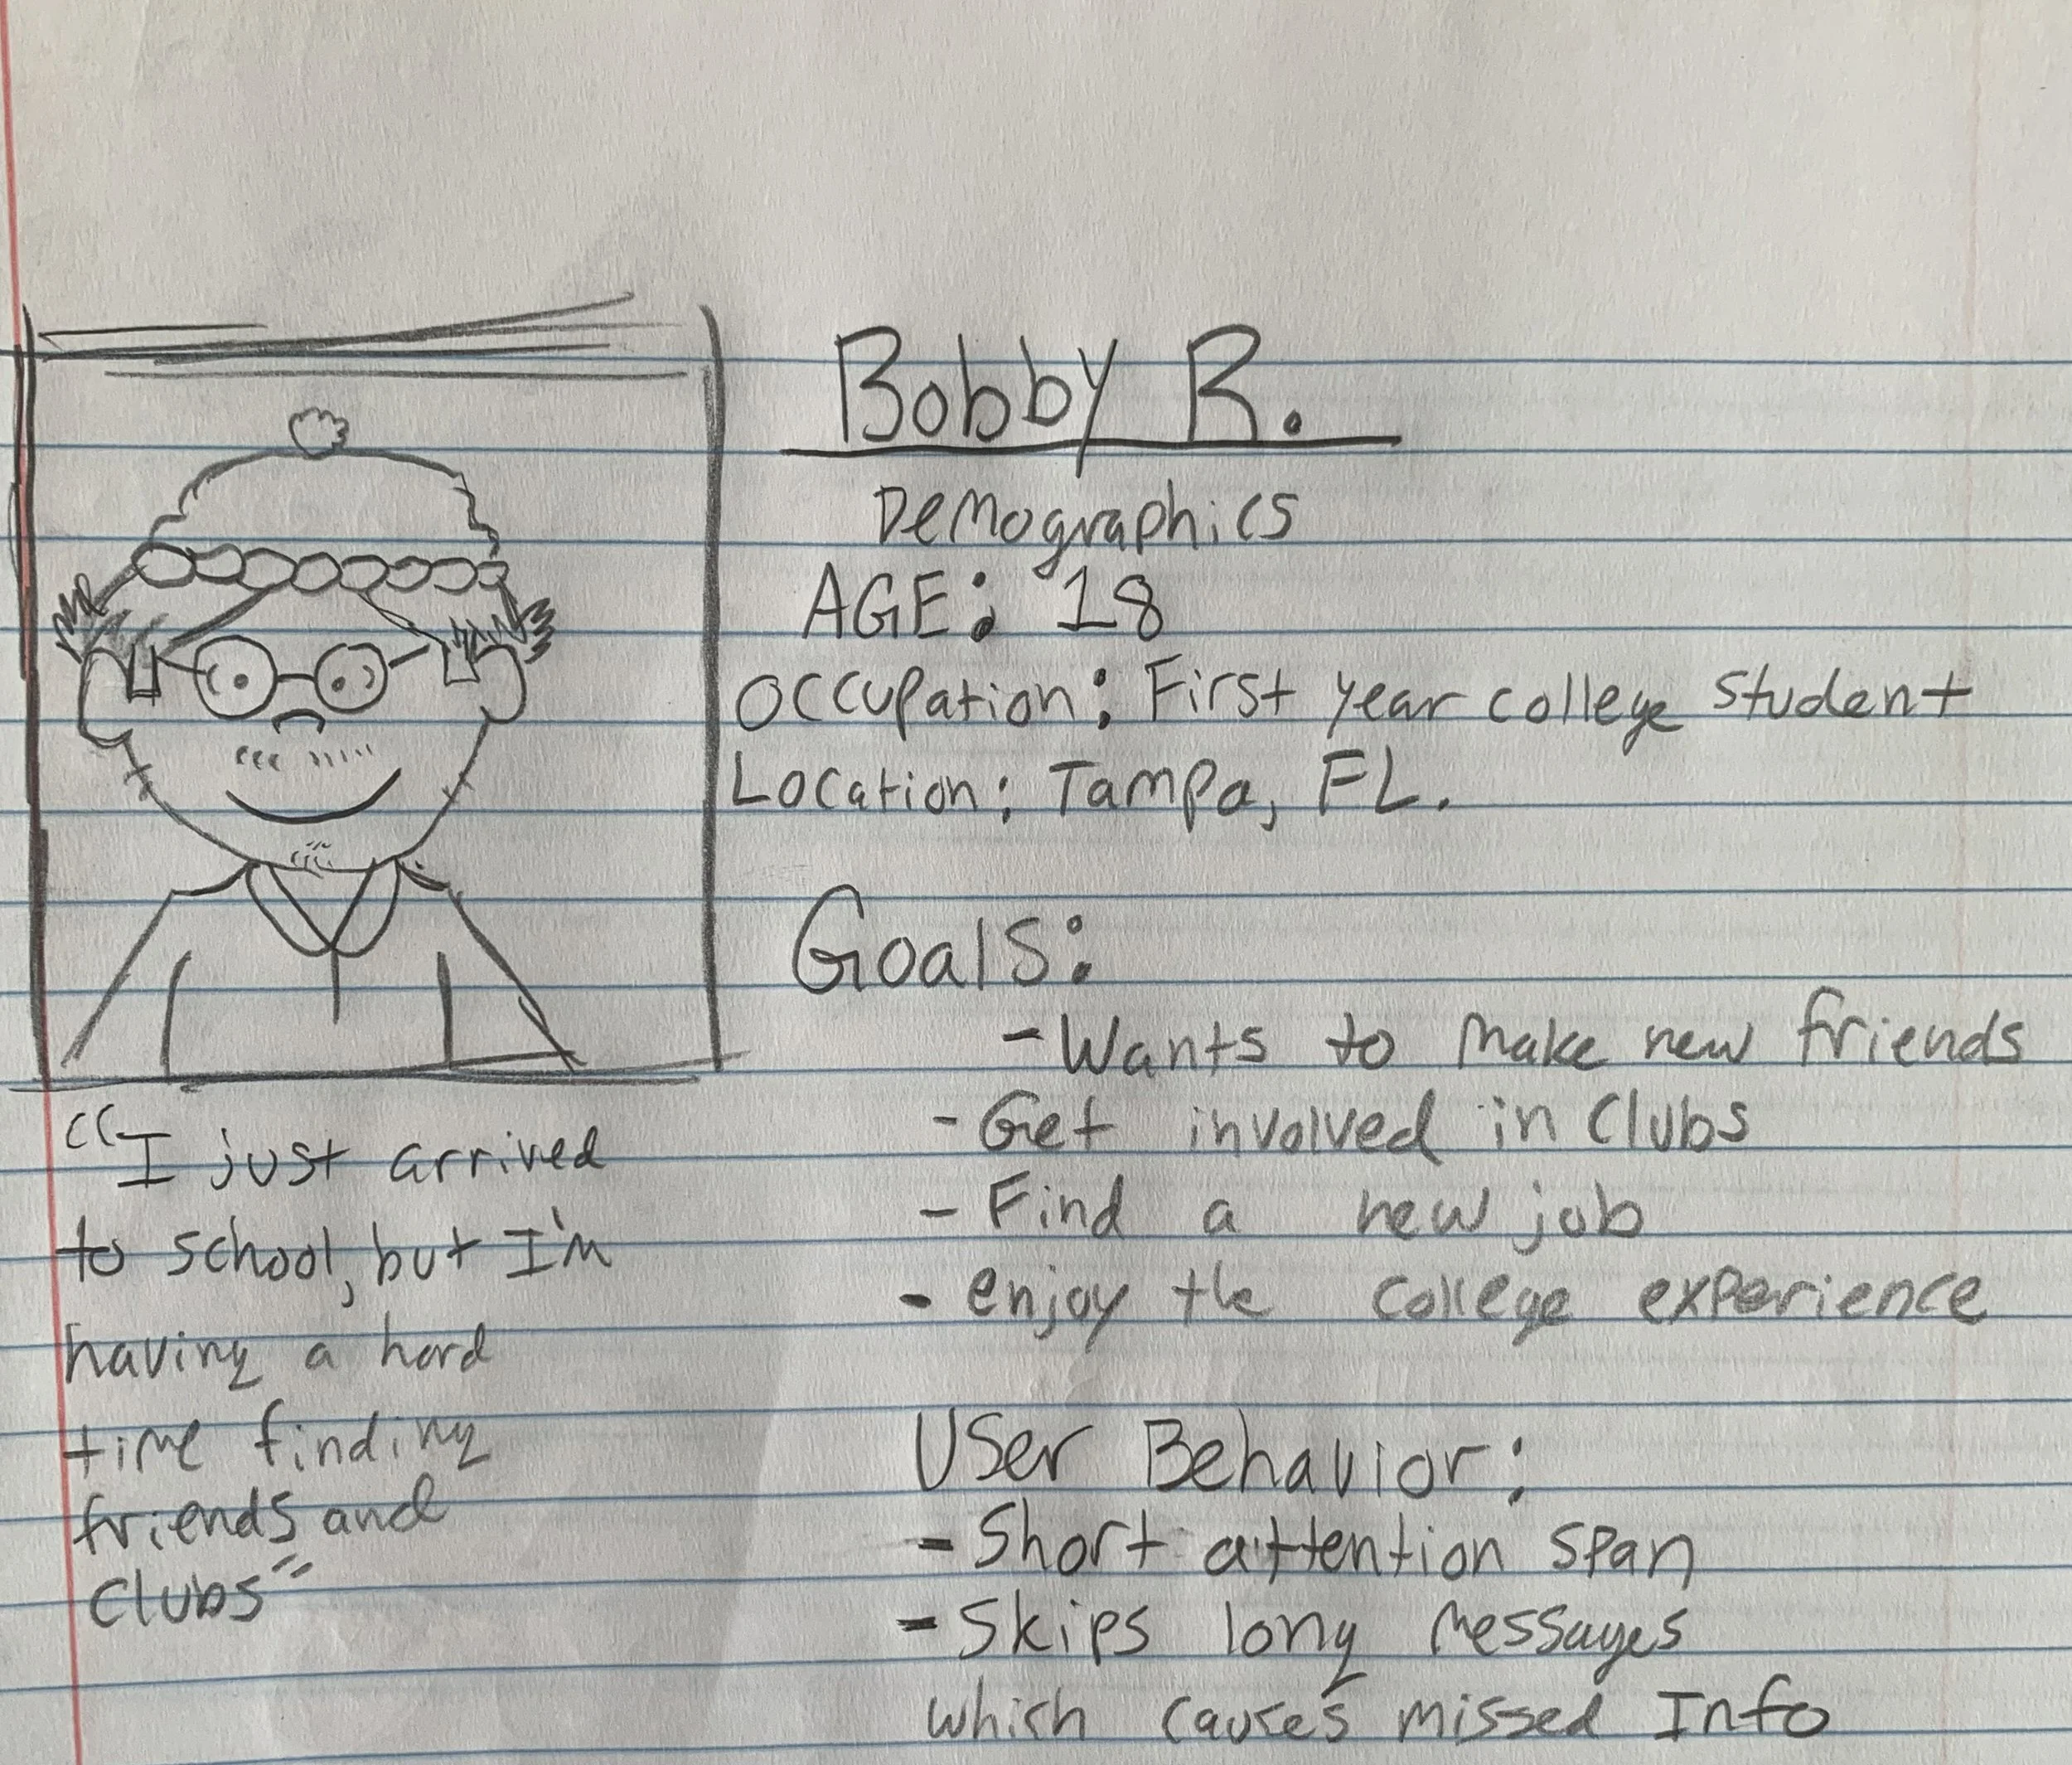 Bobby R.
Demographics
AGE: 18
Occupation: First year college student
Location: Tampa, FL.
Goals:
- Wants to make new friends
- Get involved in Clubs
- Find a new job
- enjoy the college experience
User Behavior:
- Short attention span
- Skips long messages
which causes missed Info
"I just arrived
to school, but I'm
having a hard
time finding
friends and
Clubs"